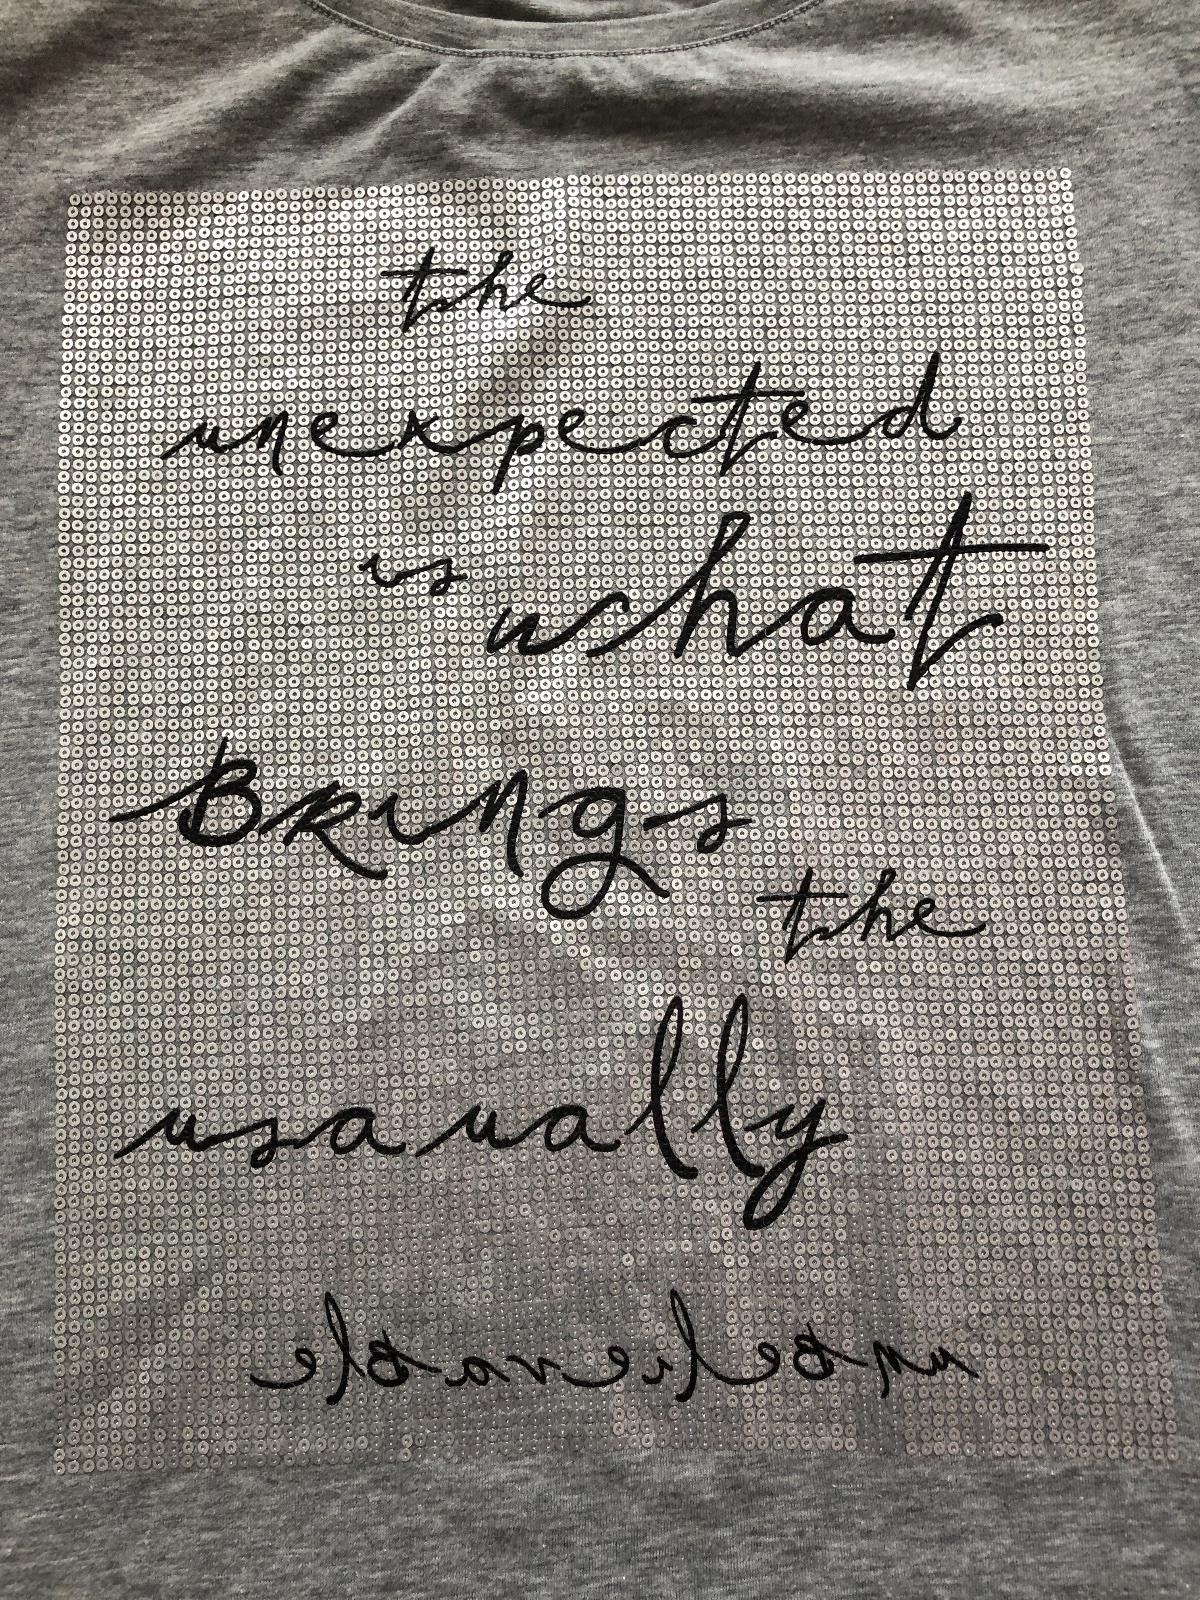 the
unexpected
is what
BRings
the
usually
unBelievaBle